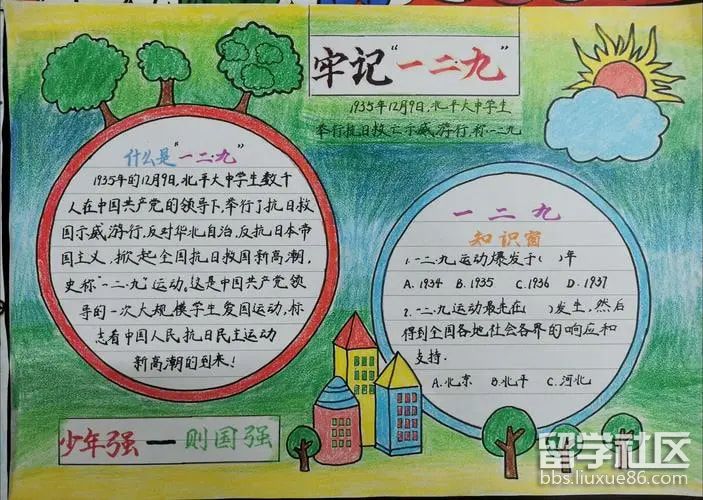 牢记“一二·九”
1935年12月9日,北平大中学生
举行抗日救亡示威游行,称一二九
什么是“一二·九”
1935年的12月9日,北平大中学生数千
人在中国共产党的领导下,举行了抗日救
国示威游行,反对华北自治,反抗日本帝
国主义,掀起全国抗日救国新高潮,
史称“一二·九”运动,这是中国共产党领
导的一次大规模学生爱国运动,标
志着中国人民抗日民主运动
新高潮的到来!
一二九
知识窗
1.一二·九运动爆发于( )年
A.1934 B.1935 C.1936 D.1937
2.一二·九运动最先在( )发生,然后
得到全国各地社会各界的响应和
支持.
A.北京 B.北平 C.河北
少年强一则国强
留学社区
bbs.liuxue86.com